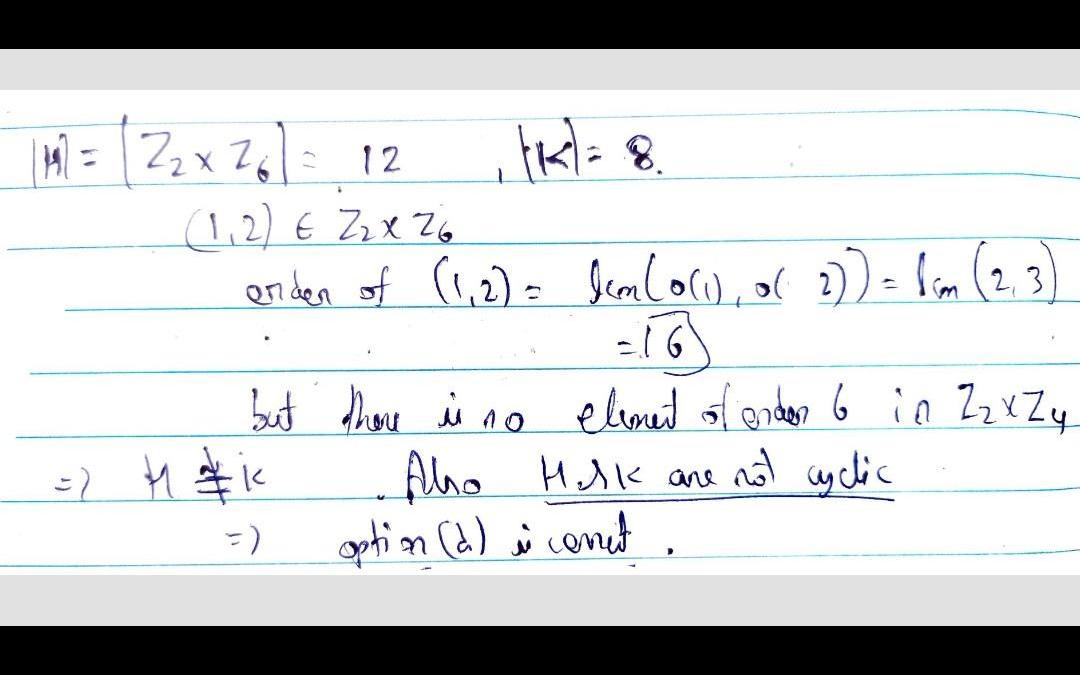 |H| = |Z₂ × Z₆| = 12 , |K| = 8.
(1,2) ∈ Z₂ × Z₆
order of (1,2) = lcm(o(1), o(2)) = lcm(2,3)
= 6
but there is no element of order 6 in Z₂ × Z₄
=> H ≇ K . Also H & K are not cyclic
=> option (d) is correct.